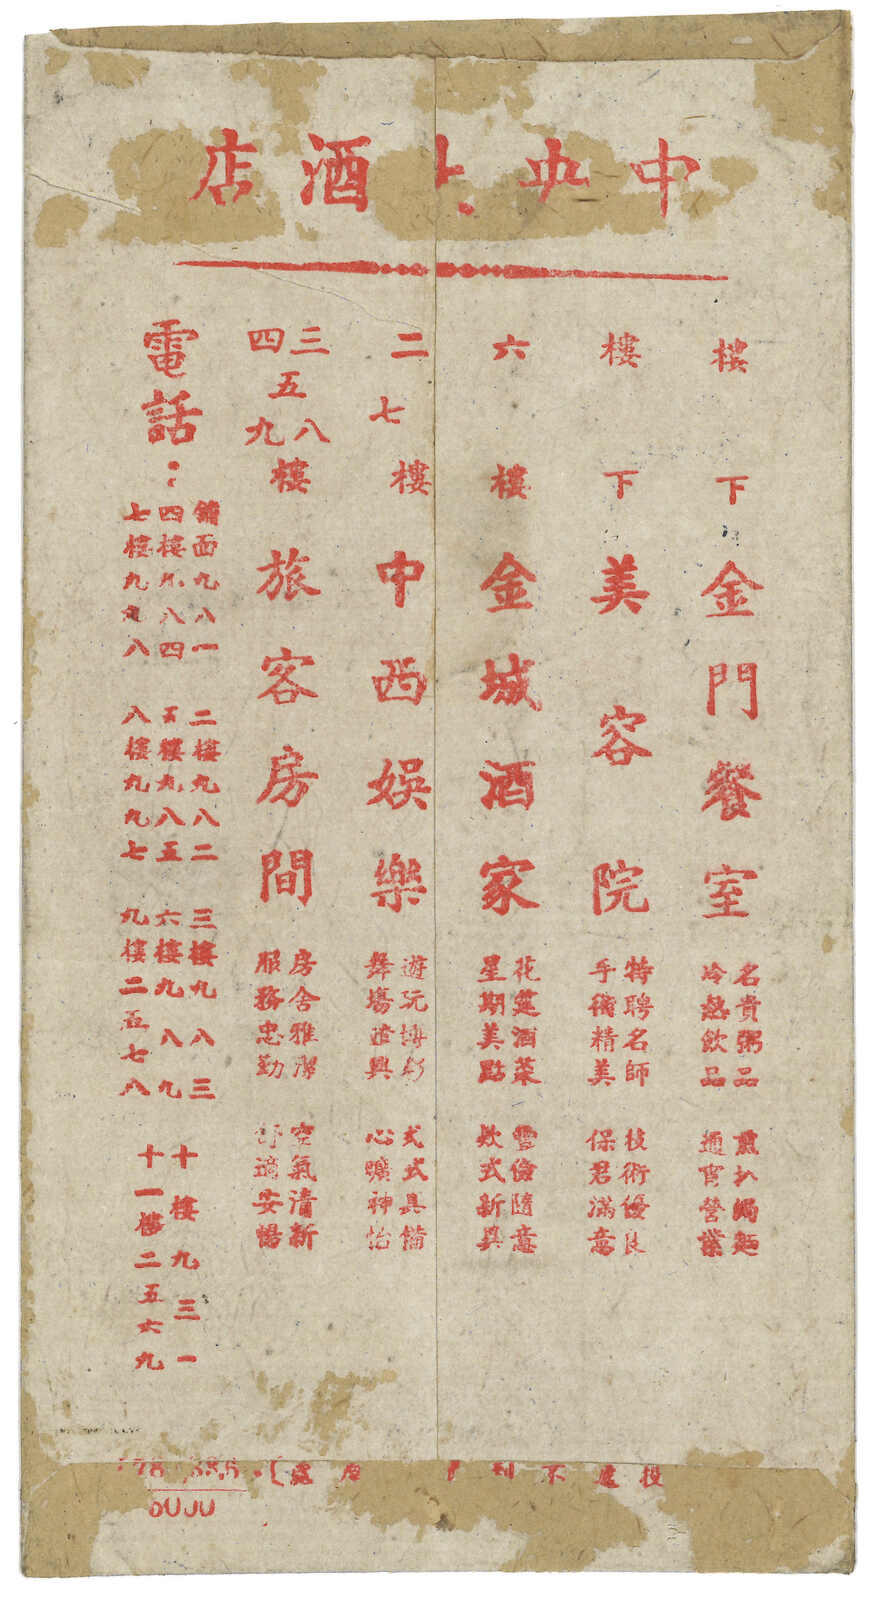 中央酒店
樓下金門餐室 名貴粥品 冷熱飲品 煎扒焗麵 通宵營業
樓下美容院 特聘名師 手術精美 技術優良 保君滿意
六樓金城酒家 花筵酒菜 星期美點 豐儉隨意 款式新異
二七樓中西娛樂 遊玩博彩 舞場遣興 式式具備 心曠神怡
三四五八九樓旅客房間 房舍雅潔 服務忠勤 空氣清新 舒適安暢
電話：
舖面九八一 二樓九八二 三樓九八三
四樓九八四 五樓九八五 六樓九八九 十樓九三一
七樓九九八 八樓九九七 九樓二五七八 十一樓二五六九
投遞不到